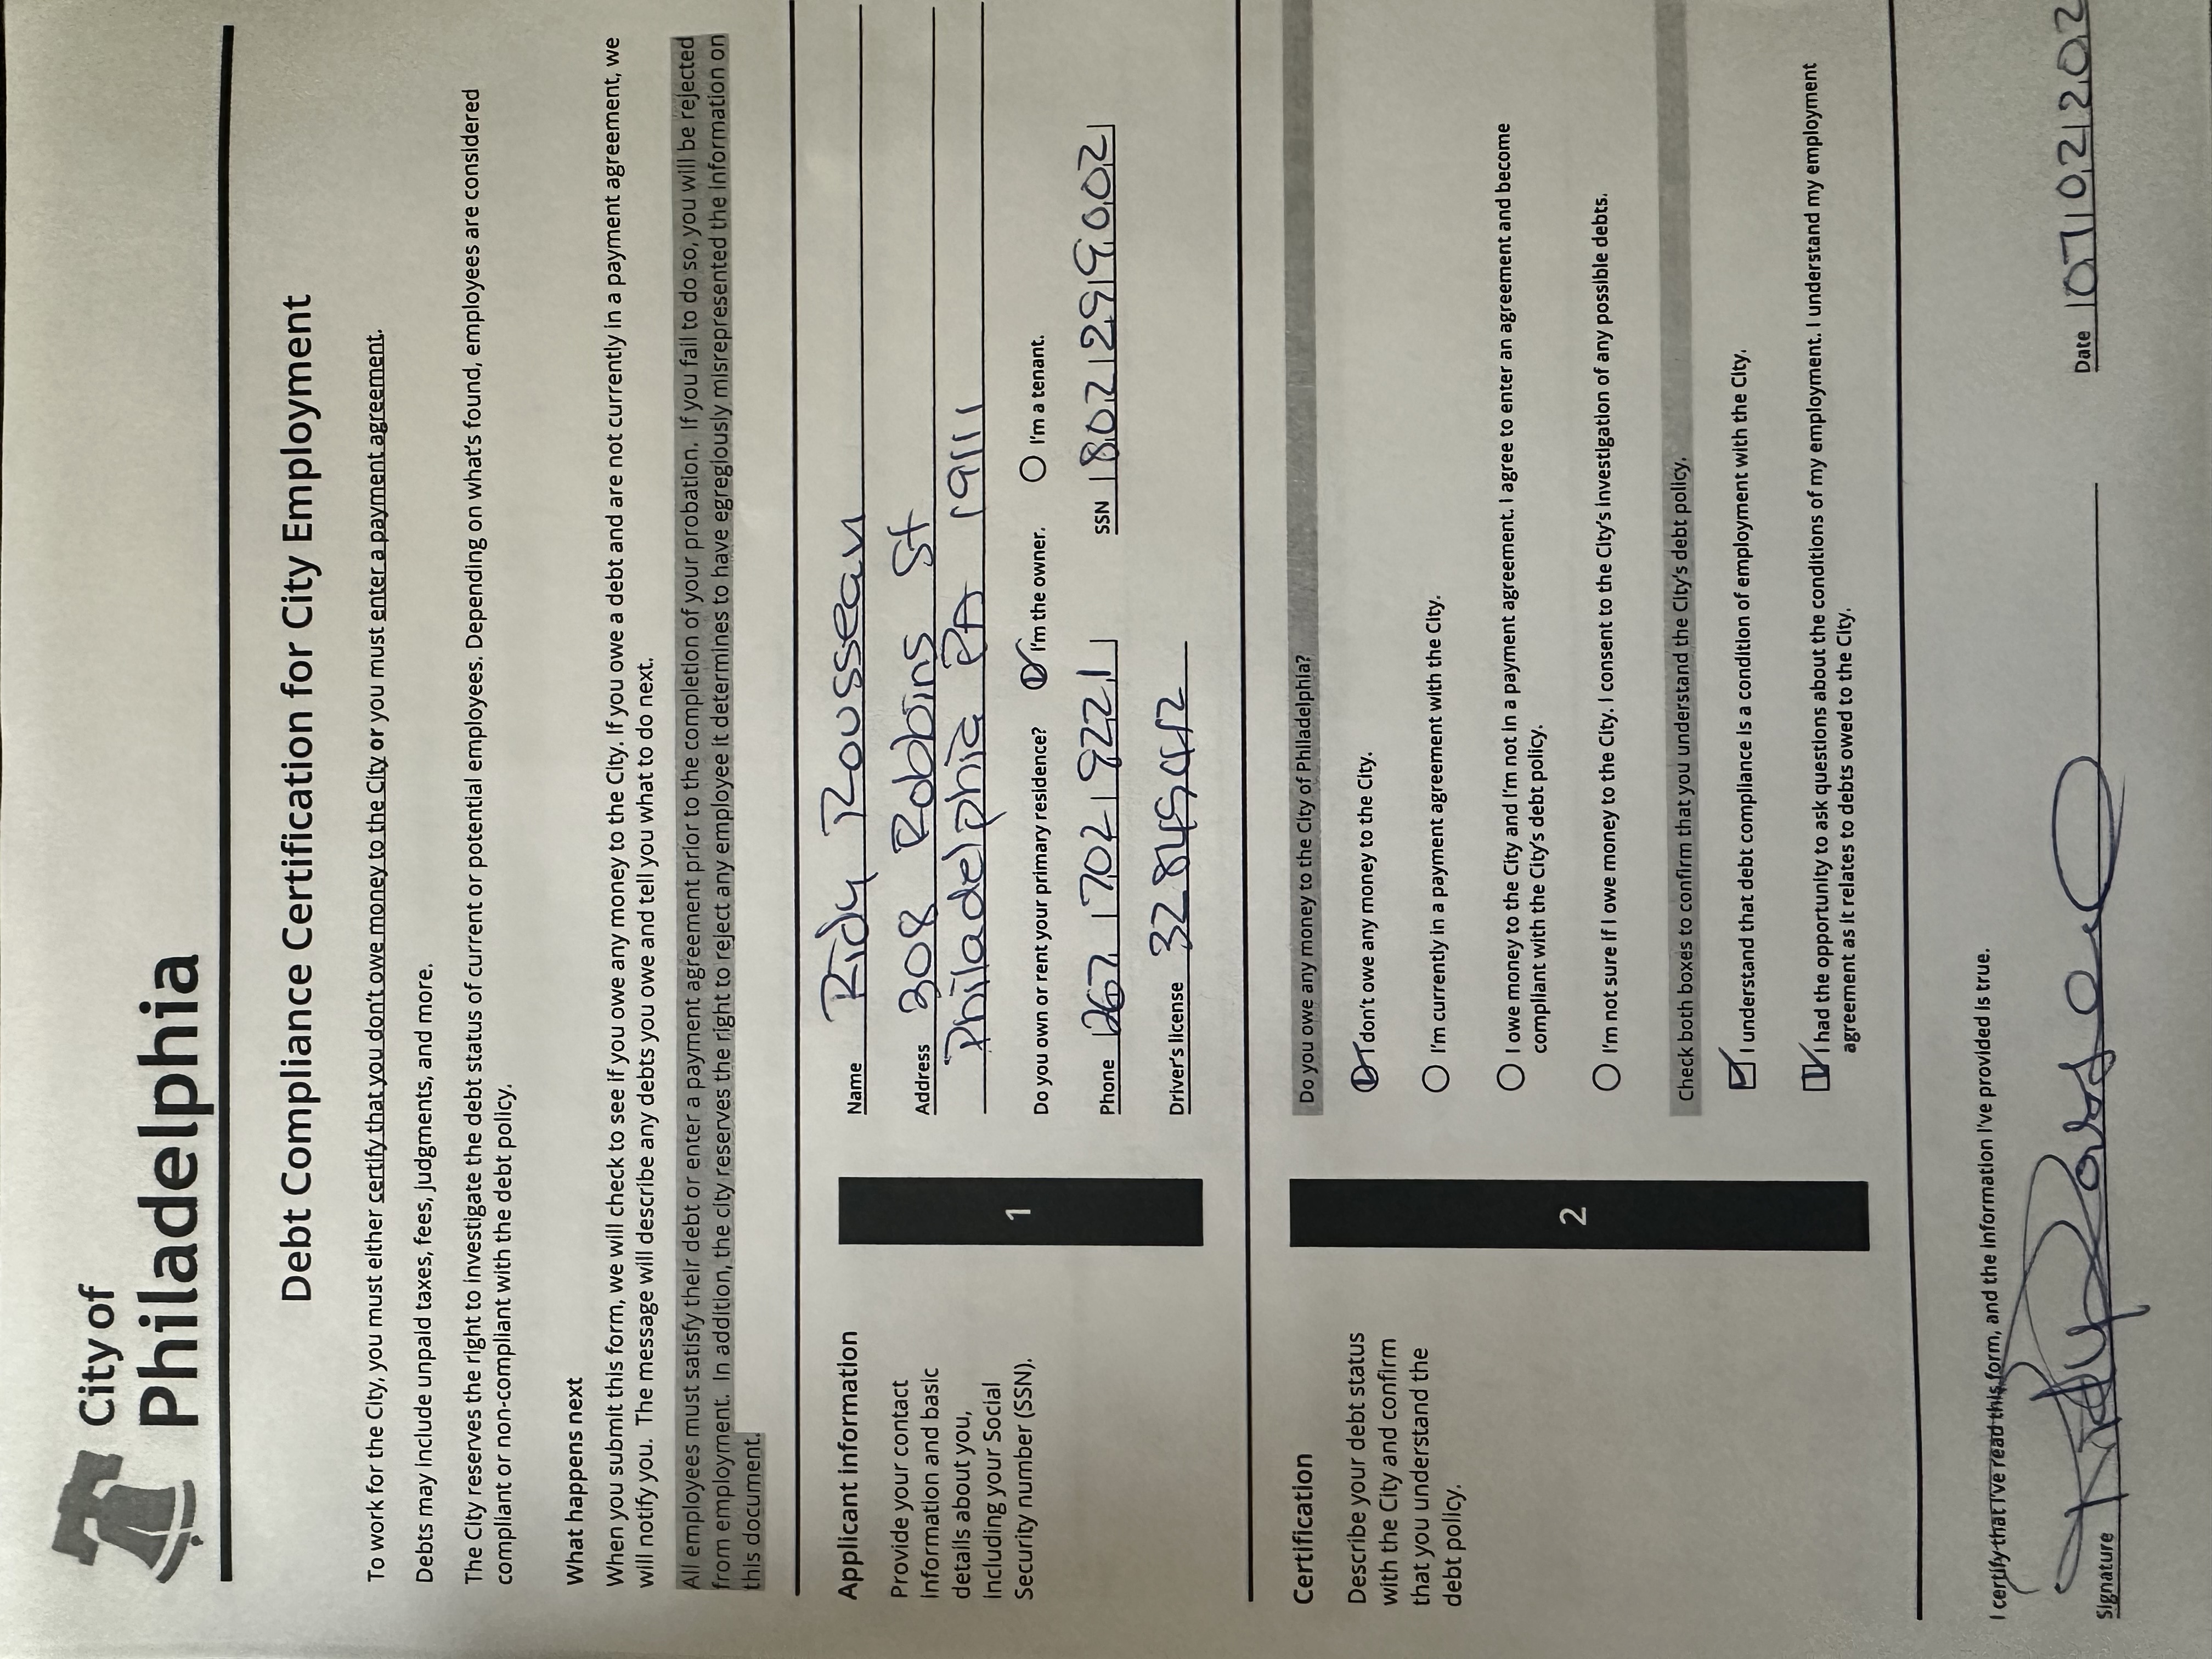 City of
Philadelphia
Debt Compliance Certification for City Employment
To work for the City, you must either certify that you don't owe money to the City or you must enter a payment agreement.
Debts may include unpaid taxes, fees, judgments, and more.
The City reserves the right to investigate the debt status of current or potential employees. Depending on what's found, employees are considered
compliant or non-compliant with the debt policy.
What happens next
When you submit this form, we will check to see if you owe any money to the City. If you owe a debt and are not currently in a payment agreement, we
will notify you. The message will describe any debts you owe and tell you what to do next.
All employees must satisfy their debt or enter a payment agreement prior to the completion of your probation. If you fail to do so, you will be rejected
from employment. In addition, the city reserves the right to reject any employee it determines to have egregiously misrepresented the information on
this document.
Applicant information
Provide your contact
information and basic
details about you,
including your Social
Security number (SSN).
1
Name Ridy Rousseau
Address 308 Robbins St
Philadelphia PA 19111
Do you own or rent your primary residence? I'm the owner. I'm a tenant.
Phone 267 702 9221 SSN 802 29 9002
Driver's license
Certification
Describe your debt status
with the City and confirm
that you understand the
debt policy.
2
Do you owe any money to the City of Philadelphia?
I don't owe any money to the City.
I'm currently in a payment agreement with the City.
I owe money to the City and I'm not in a payment agreement. I agree to enter an agreement and become
compliant with the City's debt policy.
I'm not sure if I owe money to the City. I consent to the City's investigation of any possible debts.
Check both boxes to confirm that you understand the City's debt policy.
I understand that debt compliance is a condition of employment with the City.
I had the opportunity to ask questions about the conditions of my employment. I understand my employment
agreement as it relates to debts owed to the City.
I certify that I've read this form, and the information I've provided is true.
Signature Ridy Rousseau
Date 07 02 202